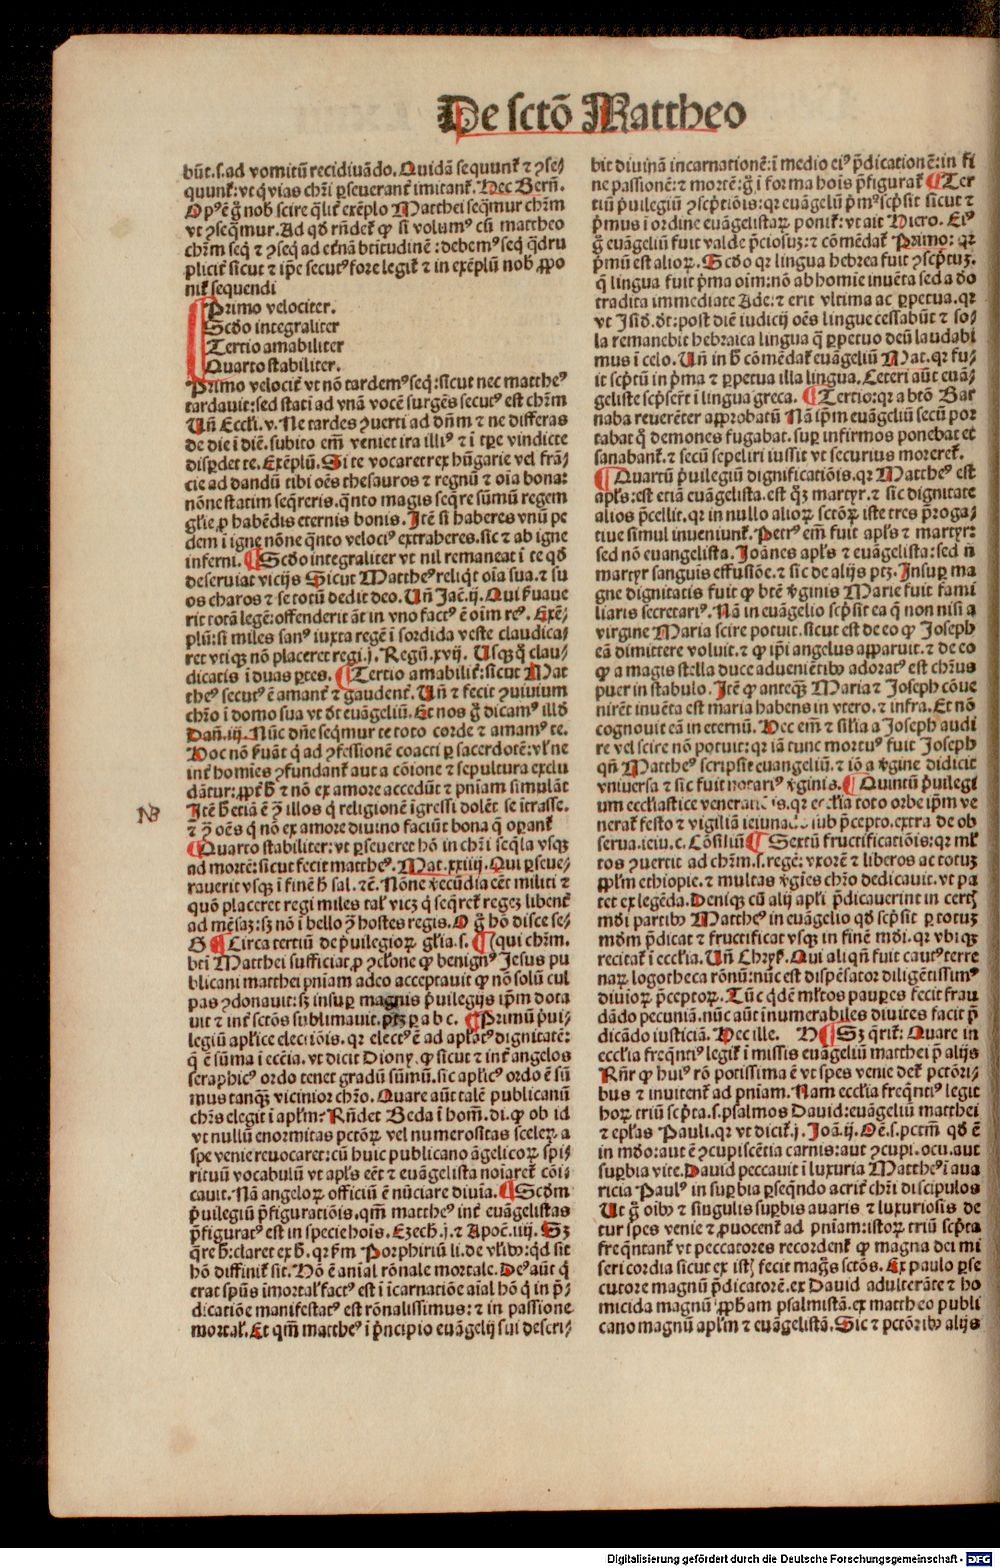 De sctō Mattheo
būt.s.ad vomitū recidiuādo. Quidā sequunt̄ ⁊ ꝯse⸗
quunt̄: vt q̄ vias chr̄i ꝑseuerant̄ imitant̄. Hec Bern̄.
Opꝰ ē g̊ nob̄ scire qual̄r exēplo Matthei seq̄mur chr̄m
vt ꝯseq̄mur. Ad qd̄ rn̄dek̄ ꝙ si volumꝰ cū mattheo
chr̄m seq̄ ⁊ ꝯseq̄ ad etnā btitudinē: debemꝰ seq̄ q̄dru
plicit̄ sicut ⁊ ip̄e secutꝰ fore legit̄ ⁊ in exēplū nob̄ ꝓpo
nit̄ sequendi
Primo velociter.
Scd̄o integraliter
Tertio amabiliter
Quarto stabiliter.
Primo velocit̄ vt nō tardemꝰ seq̄: sicut nec mattheꝰ
tardauit: sed stati ad vnā vocē surgēs secutꝰ est chr̄m
Un̄ Eccli. v. Ne tardes ꝯuerti ad dn̄m ⁊ ne differas
de die ī diē. subito em̄ veniet ira illiꝰ ⁊ ī tp̄e vindicte
disp̄det te. Exēplū. Si te vocaret rex hūgarie vel frā⸗
cie ad dandū tibi oēs thesauros ⁊ regnū ⁊ oīa bona:
nōne statim seq̄reris. q̄nto magis seq̄re sūmū regem
gl̄ie ꝓ habēdis eternis bonis. Itē si haberes vnū pe
dem ī igne nōne q̄nto velociꝰ extraheres. sic ⁊ ab igne
inferni. ¶ Scd̄o integraliter vt nil remaneat ī te qd̄
deseruiat vicijs Sicut Mattheꝰ reliq̄t oīa sua. ⁊ su
os charos ⁊ se totū dedit deo. Un̄ Jac̄. ij. Qui ẜuaue
rit totā legē: offenderit āt in vno factꝰ ē oim reꝰ. Exē⸗
plū: si miles sanꝰ iuxta regē ī sordida veste claudica⸗
ret vtiqꝫ nō placeret regi. j. Regū. xvij. Usqꝫ q̄ clau⸗
dicatis ī duas ꝑtes. ¶ Tertio amabilit̄: sicut Mat
theꝰ secutꝰ ē amant̄ ⁊ gaudent̄. Un̄ ⁊ fecit ꝯuiuium
chr̄o ī domo sua vt d̄t euāgeliū. Et nos g̊ dicamꝰ illd̄
Dan̄. iij. Nūc dn̄e seq̄mur te toto corde ⁊ amamꝰ te.
Hoc nō ẜuāt q̄ ad ꝯfessionē coacti ꝑ sacerdotē: vl̄ ne
int̄ homies ꝯfundant̄ aut a cōione ⁊ sepultura exclu
dātur: ꝓpt̄ h̄ ⁊ nō ex amore accedūt ⁊ pniam simulāt
Itē h̄ etiā ē ꝯ illos q̄ religionē īgressi dolēt se itrasse.
⁊ ꝯ oēs q̄ nō ex amore diuino faciūt bona q̄ oꝑant̄
¶ Quarto stabiliter: vt ꝑseueret hō in chr̄i seq̄la vsqꝫ
ad mortē: sicut fecit mattheꝰ. Mat. xxiiij. Qui ꝑseue⸗
rauerit vsqꝫ ī finē h̄ sal. ⁊c̄. Nōne ve̅cūdia cēt militi ⁊
quō placeret regi miles tal̄ vicꝫ q̄ seq̄ret̄ regeꝫ libent̄
ad mēsaꝫ: sꝫ nō ī bello ꝯ hostes regis. O g̊ hō disce se⸗
G ¶ Circa tertiū de p̄uilegioꝝ gl̄ia. s. ¶ qui chr̄m.
bti Matthei sufficiat ꝓ ꝯclōne ꝙ benignꝰ Jesus pu
blicani matthei pniam adeo acceptauit ꝙ nō solū cul
pas ꝯdonauit: sꝫ insuꝑ magnis p̄uilegijs ip̄m dota
uit ⁊ int̄ sctōs sublimauit. ptꝫ ꝑ a b c. ¶ Primū p̄ui⸗
legiū apl̄ice electiōis. qr electꝰ ē ad apl̄atꝰ dignitatē:
q̄ ē sūma ī ecc̄ia. vt dicit Diony. ꝙ sicut ⁊ int̄ angelos
seraphicꝰ ordo tenet gradū sūmū. sic apl̄icꝰ ordo ē sū
mus tanqꝫ vicinior chr̄o. Quare aūt talē publicanū
chr̄s elegit ī apl̄m? Rn̄det Beda ī hom̄. di. ꝙ ob id
vt nullū enormitas pctōꝝ vel numerositas sceleꝝ a
spe venie reuocaret: cū huic publicano āgelicoꝝ spi⸗
rituū vocabulū vt apl̄s eēt ⁊ euāgelista noiaret̄ cōi⸗
cauit. Nā angeloꝝ officiū ē nūciare diuīa. ¶ Scd̄m
p̄uilegiū p̄figuratiōis. qm̄ mattheꝰ int̄ euāgelistas
p̄figuratꝰ est in specie hoīs. Ezech. j. ⁊ Apoc̄. iiij. Sꝫ
q̄re h̄: claret ex h̄. qr ẜm Porphiriū li. de vl̄ibꝰ: qd̄ sit
hō diffinit̄ sit. Hō ē aīal rōnale mortale. Deꝰ aūt q̄
erat spūs imortal̄ factꝰ est ī īcarnatiōe aīal hō q̄ in p̄⸗
dicatiōe manifestatꝰ est rōnalissimus: ⁊ in passione
mortal̄. Et qm̄ mattheꝰ ī p̄ncipio euāgelij sui descri⸗
bit diuinā incarnationē: ī medio eiꝰ p̄dicationē: in fi
ne passionē: ⁊ mortē: g̊ ī forma hoīs p̄figurat̄ ¶ Ter
tiū p̄uilegiū ꝯscp̄tiōis: qr euāgeliū p̄mꝰ scp̄sit sicut ⁊
p̄mus ī ordine euāgelistaꝝ ponit̄: vt ait Hiero. Eiꝰ
g̊ euāgeliū fuit valde p̄ciosuꝫ: ⁊ cōmēdat̄ Primo: qr
p̄mū est alioꝝ. Scd̄o qr lingua hebrea fuit ꝯscp̄tuꝫ.
q̄ lingua fuit p̄ma oīm: nō ab homie inuēta sed a dō
tradita immediate Ade: ⁊ erit vltima ac ꝑpetua. qr
vt Isid̄. d̄t: post diē iudicij oēs lingue cessabūt ⁊ so⸗
la remanebit hebraica lingua q̄ ꝑpetuo deū laudabi
mus ī celo. Un̄ in h̄ cōmēdat̄ euāgeliū Mat. qr fu⸗
it scp̄tū in p̄ma ⁊ ꝑpetua illa lingua. Ceteri aūt euā⸗
geliste scp̄sert̄ ī lingua greca. ¶ Tertio: qr a btō Bar
naba reuerēter approbatū Nā ip̄m euāgeliū secū por
tabat q̄ demones fugabat. suꝑ infirmos ponebat et
sanabant̄. ⁊ secū sepeliri iussit vt securius moreret̄.
¶ Quartū p̄uilegiū dignificatiōis. qr Mattheꝰ est
apl̄s: est etiā euāgelista. est q̄ꝫ martyr. ⁊ sic dignitate
alios p̄cellit. qr in nullo alioꝝ sctōꝝ iste tres p̄roga⸗
tiue simul inueniunt̄. Petrꝰ em̄ fuit apl̄s ⁊ martyr:
sed nō euangelista. Joānes apl̄s ⁊ euāgelista: sed n̄
martyr sanguis effusiōe. ⁊ sic de alijs ptꝫ. Insuꝑ ma
gne dignitatis fuit ꝙ btē v̄ginis Marie fuit fami
liaris secretariꝰ. Nā in euāgelio scp̄sit ea q̄ non nisi a
virgine Maria scire potuit. sicut est de eo ꝙ Joseph
eā dimittere voluit. ⁊ ꝙ ip̄i angelus apparuit. ⁊ de eo
ꝙ a magis stella duce aduenietibꝰ adoratꝰ est chr̄us
puer in stabulo. Itē ꝙ anteqꝫ Maria ⁊ Joseph cōue
nirēt inuēta est maria habens in vtero. ⁊ infra. Et nō
cognouit eā in eternū. Hec em̄ ⁊ sil̄ia a Joseph audi
re vel scire nō potuit: qr iā tunc mortuꝰ fuit Joseph
qn̄ Mattheꝰ scripsit euangeliū. ⁊ iō a v̄gine didicit
vniuersa ⁊ sic fuit notariꝰ v̄ginis. ¶ Quintū p̄uilegi
um eccl̄iastice veneratiōis. qr eccl̄ia toto orbe ip̄m ve
nerat̄ festo ⁊ vigiliā ieiunādo sub p̄cepto. extra de ob
serua. ieiu. c. Cōsiliū ¶ Sextū fructificatiōis: qr ml̄
tos ꝯuertit ad chr̄m. s. regē: vxorē ⁊ liberos ac totuꝫ
ppl̄m ethiopie. ⁊ multas v̄gīes chr̄o dedicauit. vt pa
tet ex legēda. Deniqꝫ cū alij apl̄i p̄dicauerint in certꝭ
mdi partibꝰ Mattheꝰ in euāgelio qd̄ scp̄sit ꝑ totuꝫ
mdm̄ p̄dicat ⁊ fructificat vsqꝫ in finē mdi. qr vbiqꝫ
recitat̄ ī eccl̄ia. Un̄ Chryso. Qui aliqn̄ fuit cautꝰ terre
naꝝ logotheca rōnū: nūc est dispēsator diligētissimꝰ
diuioꝝ p̄ceptoꝝ. Tūc q̄dē ml̄tos pauꝑes fecit frau
dādo pecuniā. nūc aūt inumerabiles diuites facit p̄
dicādo iusticiā. Hec ille. H ¶ Sꝫ q̄rit̄: Quare in
eccl̄ia freq̄ntiꝰ legit̄ ī missis euāgeliū matthei p̄ alijs
Rn̄r ꝙ huiꝰ rō potissima ē vt spes venie det̄ pctōri⸗
bus ⁊ inuitent̄ ad pniam. Nam eccl̄ia freq̄ntiꝰ legit
hoꝝ triū scp̄ta. s. psalmos Dauid: euāgeliū matthei
⁊ epl̄as Pauli. qr vt dicit̄. j. Joā. ij. Oē. s. pctm̄ qd̄ ē
in mdo: aut ē ꝯcupiscētia carnis: aut ꝯcupi. ocu. aut
suꝑbia vite. Dauid peccauit ī luxuria Mattheꝰ ī aua
ricia Paulꝰ in suꝑbia ꝑseq̄ndo acrit̄ chr̄i discipulos
Ut g̊ oībꝰ ⁊ singulis suꝑbis auaris ⁊ luxuriosis de
tur spes venie ⁊ ꝓuocent̄ ad pniam: istoꝝ triū scp̄ta
freq̄ntant̄ vt peccatores recordent̄ ꝙ magna dei mi
sericordia sicut ex istꝭ fecit magꝰs sctōs. Ex paulo ꝑse
cutore magnū p̄dicatorē. ex Dauid adulterāte ⁊ ho
micida magnū ꝓph̄am psalmistā. ex mattheo publi
cano magnū apl̄m ⁊ euāgelistā. Sic ⁊ pctōribꝰ alijs
Digitalisierung gefördert durch die Deutsche Forschungsgemeinschaft - DFG